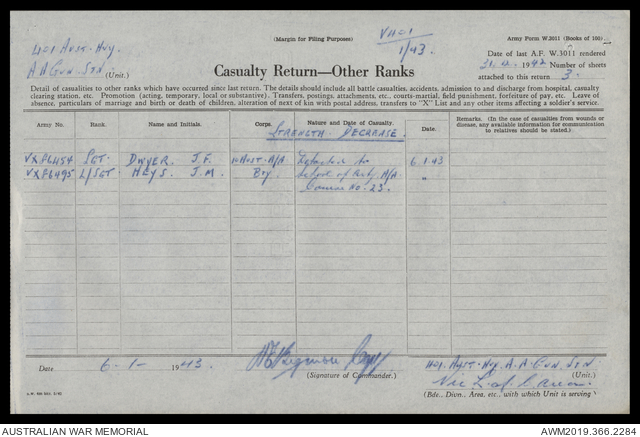 (Margin for Filing Purposes)
VII-1
1/43.
Army Form W.3011 (Books of 100)
401 Aust. Hvy.
A A Gun. Stn. (Unit.)
Date of last A.F. W.3011 rendered
31.12.1942 Number of sheets
attached to this return 3.
Casualty Return—Other Ranks
Detail of casualties to other ranks which have occurred since last return. The details should include all battle casualties, accidents, admission to and discharge from hospital, casualty
clearing station, etc. Promotion (acting, temporary, local or substantive). Transfers, postings, attachments, etc., courts-martial, field punishment, forfeiture of pay, etc. Leave of
absence, particulars of marriage and birth or death of children, alteration of next of kin with postal address, transfers to "X" List and any other items affecting a soldier's service.
Army No. Rank. Name and Initials. Corps. Nature and Date of Casualty. Date. Remarks. (In the case of casualties from wounds or
disease, any available information for communication
to relatives should be stated.)
STRENGTH DECREASE.
VX86454 SGT. DWYER. J.F. Aust. A/A to 6 1 43
VX86495 L/SGT. HEYS. J.M. Bty. School of Arty A/A "
Course No. 23.
Date 6-1- 1943.
(Signature of Commander.)
401. Aust. Hvy. A.A. Gun. Stn.
(Unit.)
Vic L of C Area.
(Bde., Divn., Area, etc., with which Unit is serving)
AUSTRALIAN WAR MEMORIAL
AWM2019.366.2284